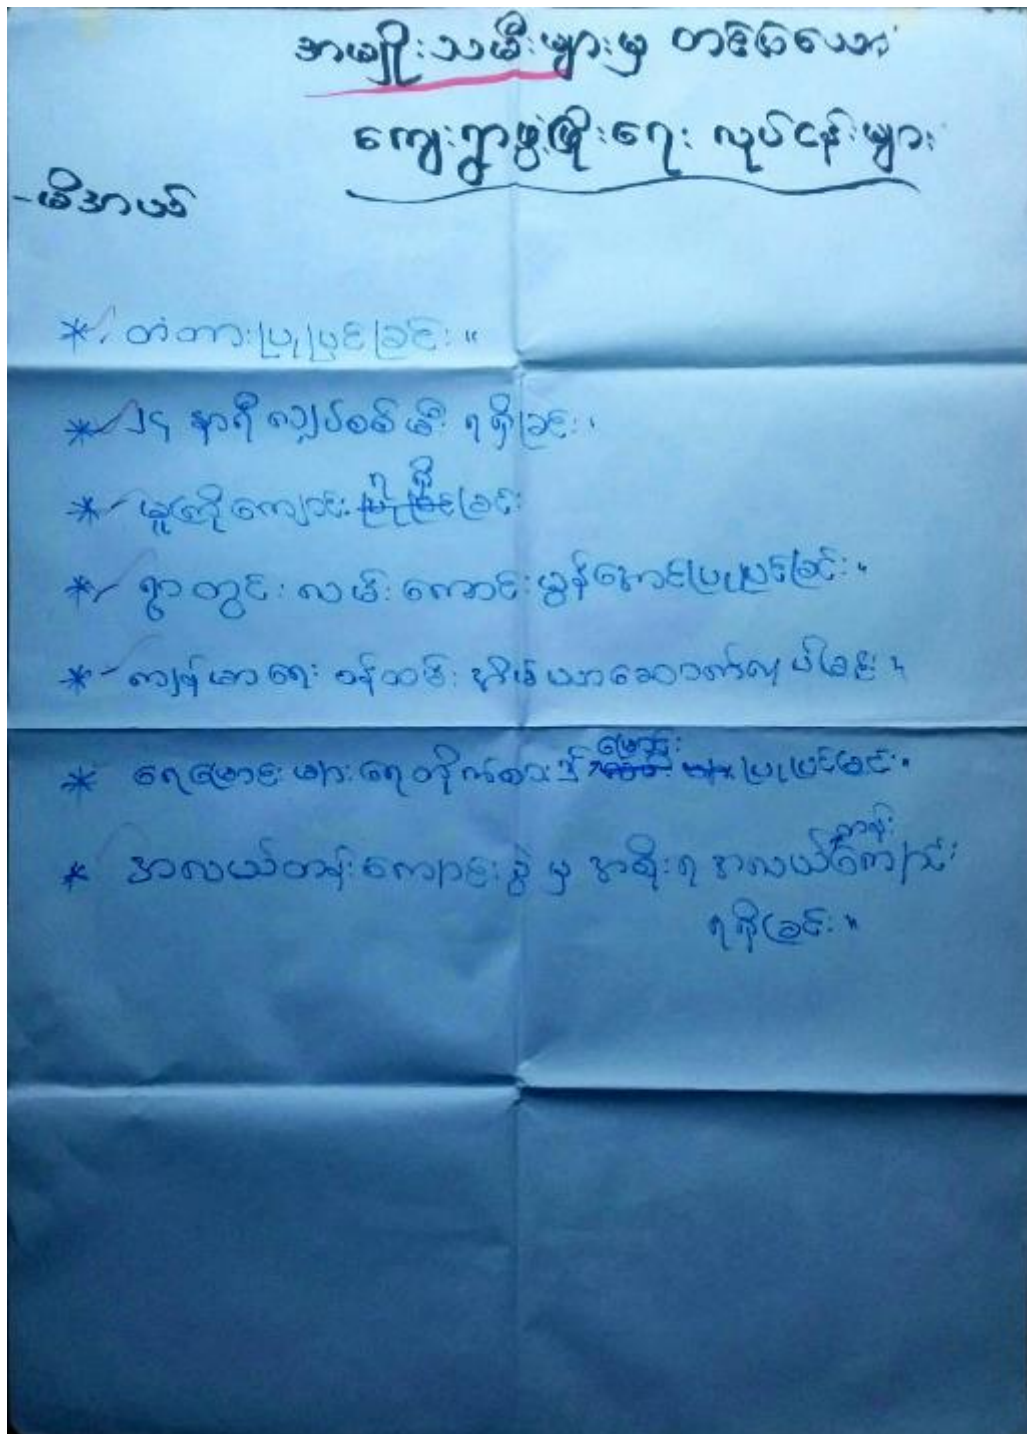 အမျိုးသမီးများမှ တင်ပြသော
ကျေးရွာဖွံ့ဖြိုးရေး လုပ်ငန်းများ
-မိအယ်
* တံတားပြုပြင်ခြင်း။
* ၂၄ နာရီ လျှပ်စစ်မီး ရရှိခြင်း။
* မူကြိုကျောင်း ရရှိခြင်း
* ရွာတွင်း လမ်း ကောင်းမွန်အောင်ပြုပြင်ခြင်း။
* ကျန်းမာရေး ဝန်ထမ်း အိမ်ယာဆောက်လုပ်ခြင်း။
* ရေမြောင်းများ ရေတိုက်စား မြောင်း ပြုပြင်ခြင်း။
* အလယ်တန်းကျောင်းခွဲ မှ အစိုးရ အလယ်တန်းကျောင်း
ရရှိခြင်း။